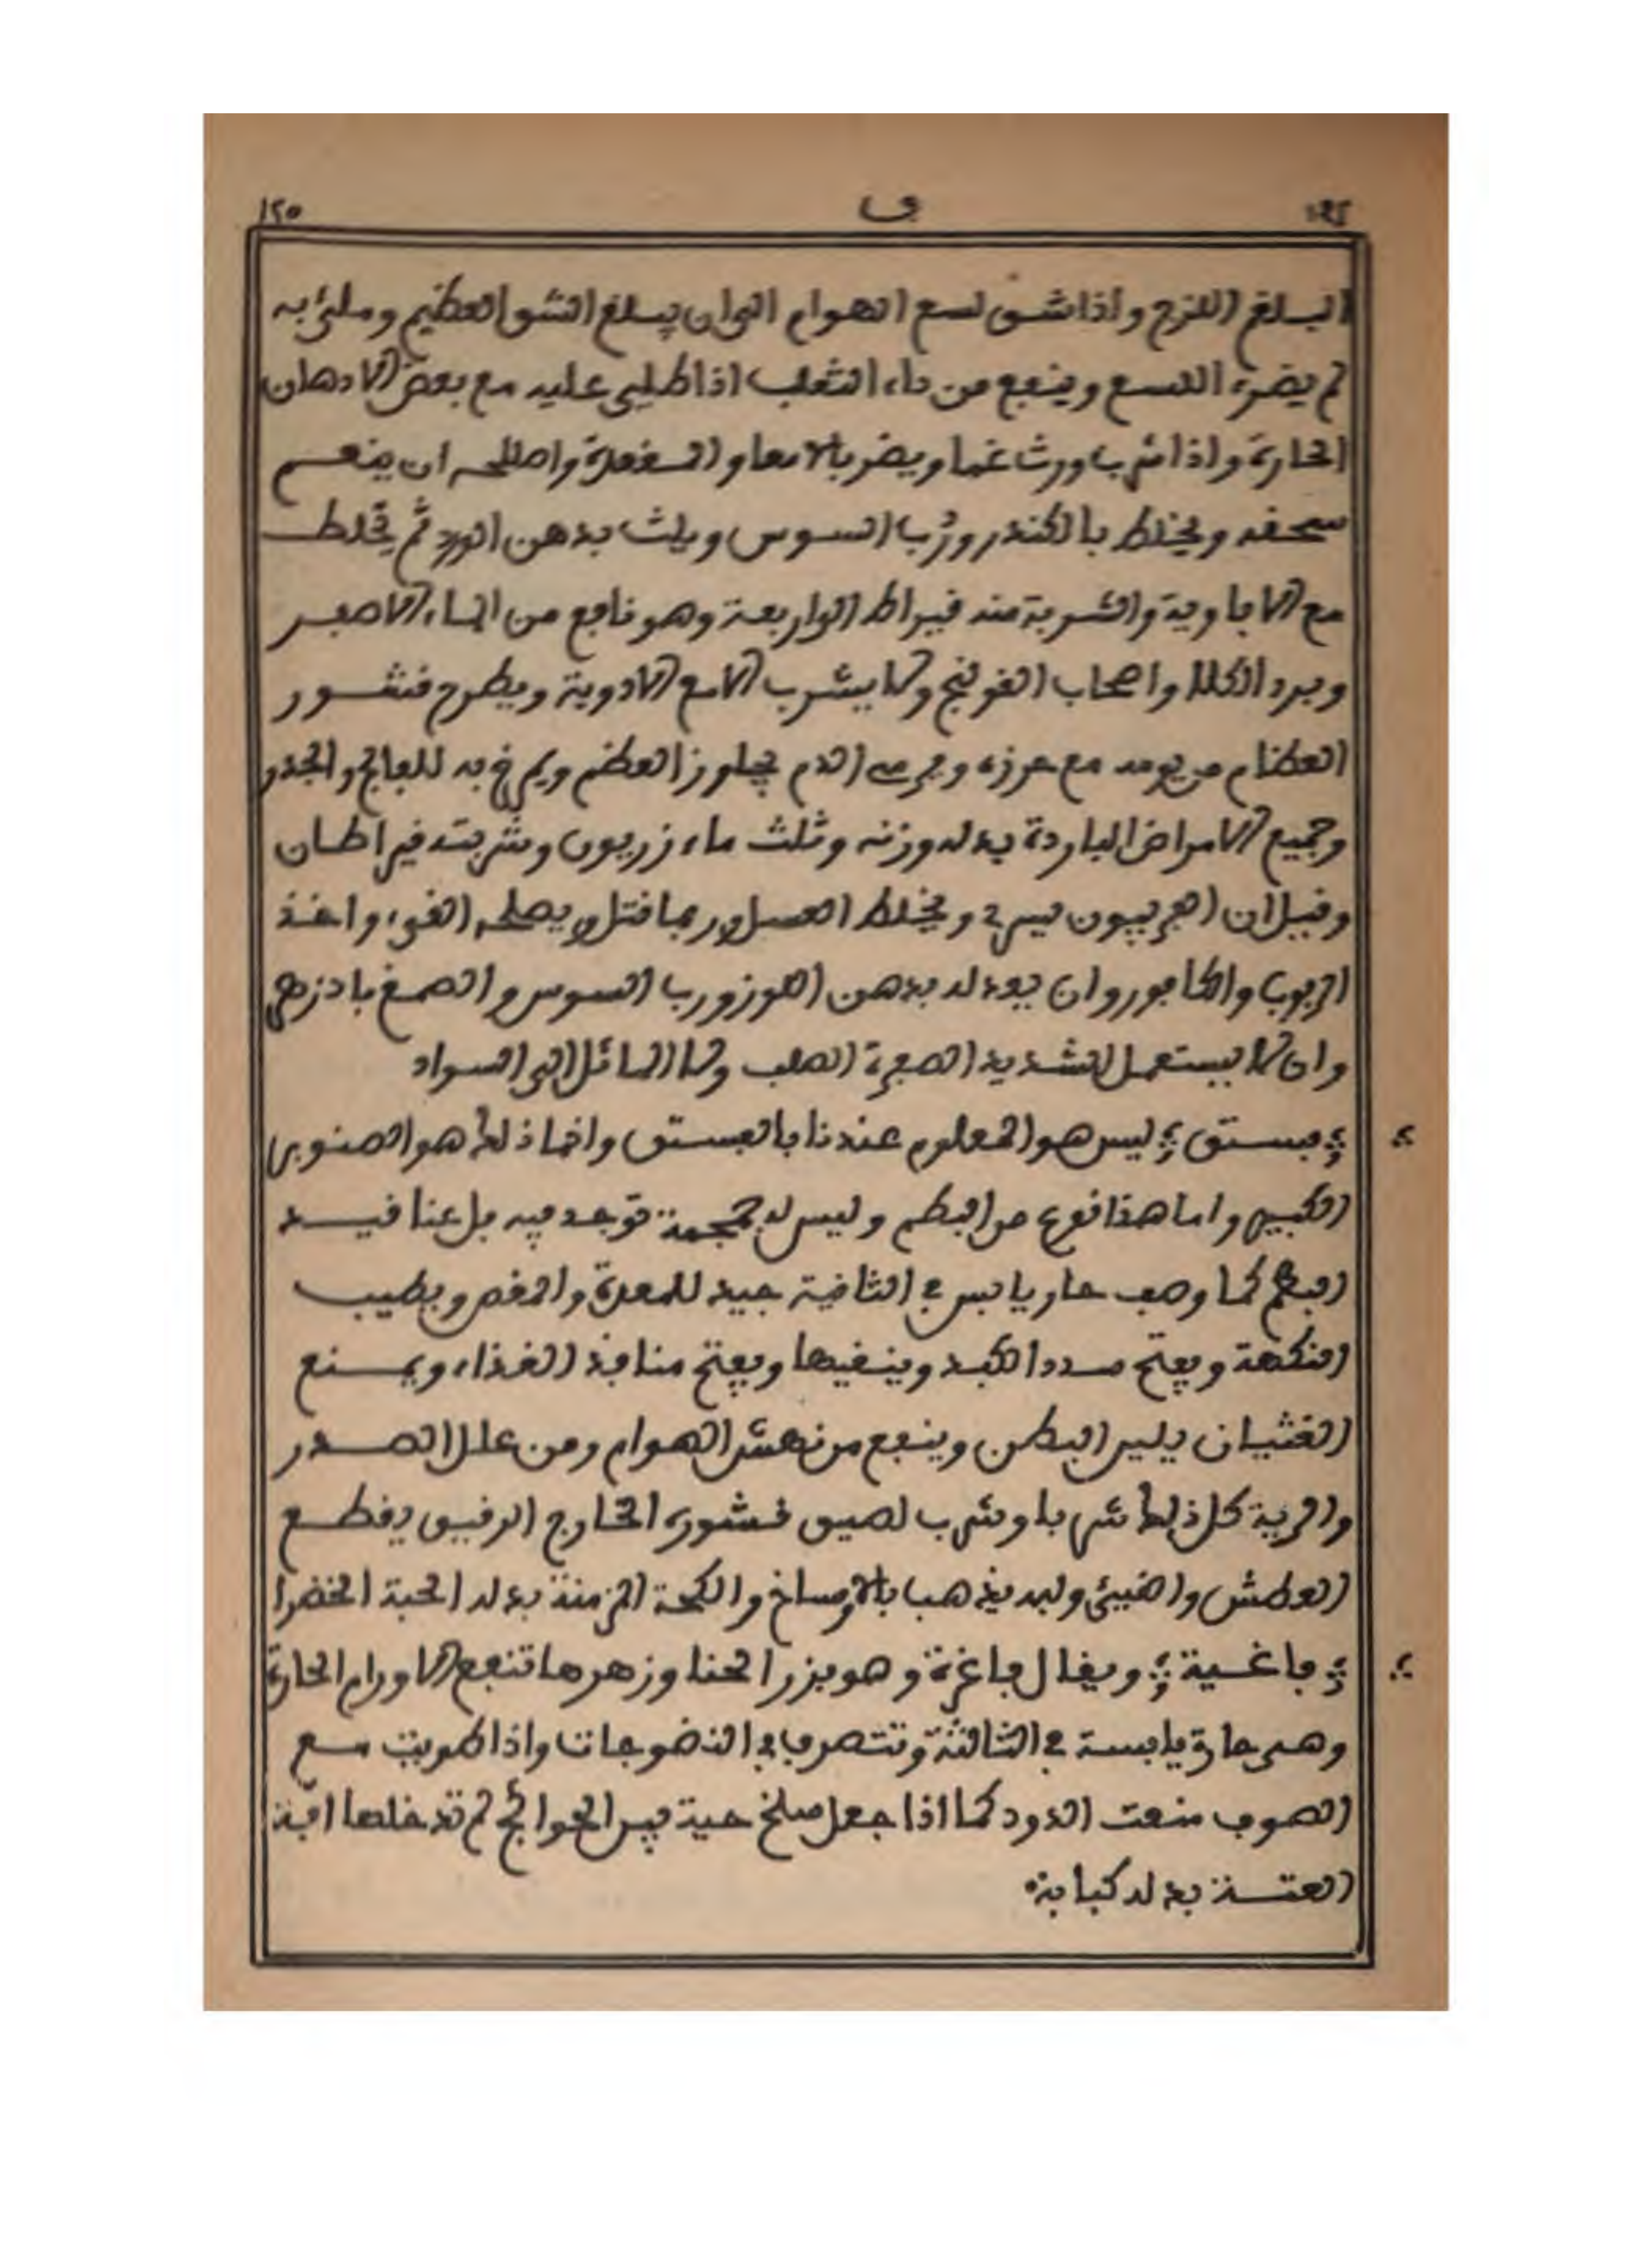 ١٢٥ ف
البلغم اللزج واذا شق لسع الهوام الى ان يبلغ الشق العظيم وملئ به
لم يضره اللسع وينفع من داء الثعلب اذا طلي عليه مع بعض الادهان
الحارة واذا شرب اورث غما ويضر بالامعا و المعدة واصلاحه ان ينعم
سحقه ويخلط بالكندر ورُب السوس ويلث بدهن الورد ثم يخلط
مع الافاوية والشربة منه قيراط الى اربعة وهو نافع من الماء الاصفر
وبرد الكلا واصحاب القولنج ولا يشرب الا مع الادوية ويطرح قشور
العظام من يومه مع غرزه الدم العظم ويمرخ به للفالج والخدر
وجميع الامراض الباردة بدله وزنه وثلث ماء زريون وشربته قيراطان
وقيل ان الفربيون ويخلط العسل وربما قتل ويصلحه القيء واخذ
الربوب والكافور وان يعدله بدهن اللوز ورب السوس والصمغ بادزهر
وان لا يستعمل الشديد الصفرة الصلب ولا المائل الى السواد
فستق ليس هو المعلوم عندنا بالفستق وانما ذلك هو الصنوبر
الكبير واما هذا فنوع من البطم وليس له جمجمة توجد فيه بل عناقيد
البطم كما وصف حار يابس في الثانية جيد للمعدة والمغص ويطيب
النكهة ويفتح سدد الكبد وينقيها ويفتح منافذ الغذاء ويمنع
الغثيان يلين البطن وينفع من نهش الهوام ومن علل الصدر
والرية كل ذلك شربا وشرب لصيق قشوره الخارج الرقيق يقطع
العطش والقيئ ولبه يذهب بالاوساخ والكحة المزمنة بدله الحبة الخضرا
فاغية ويقال فاغرة وهو بزر الحنا وزهرها تنفع الاورام الحارة
وهي حارة يابسة في الثالثة وتتصرف في النضوجات واذا طويت مع
الصوف منعت الدود كما اذا جعل سلخ حية بين الحوائج لم تدخلها افة
العتة بدله كبابة